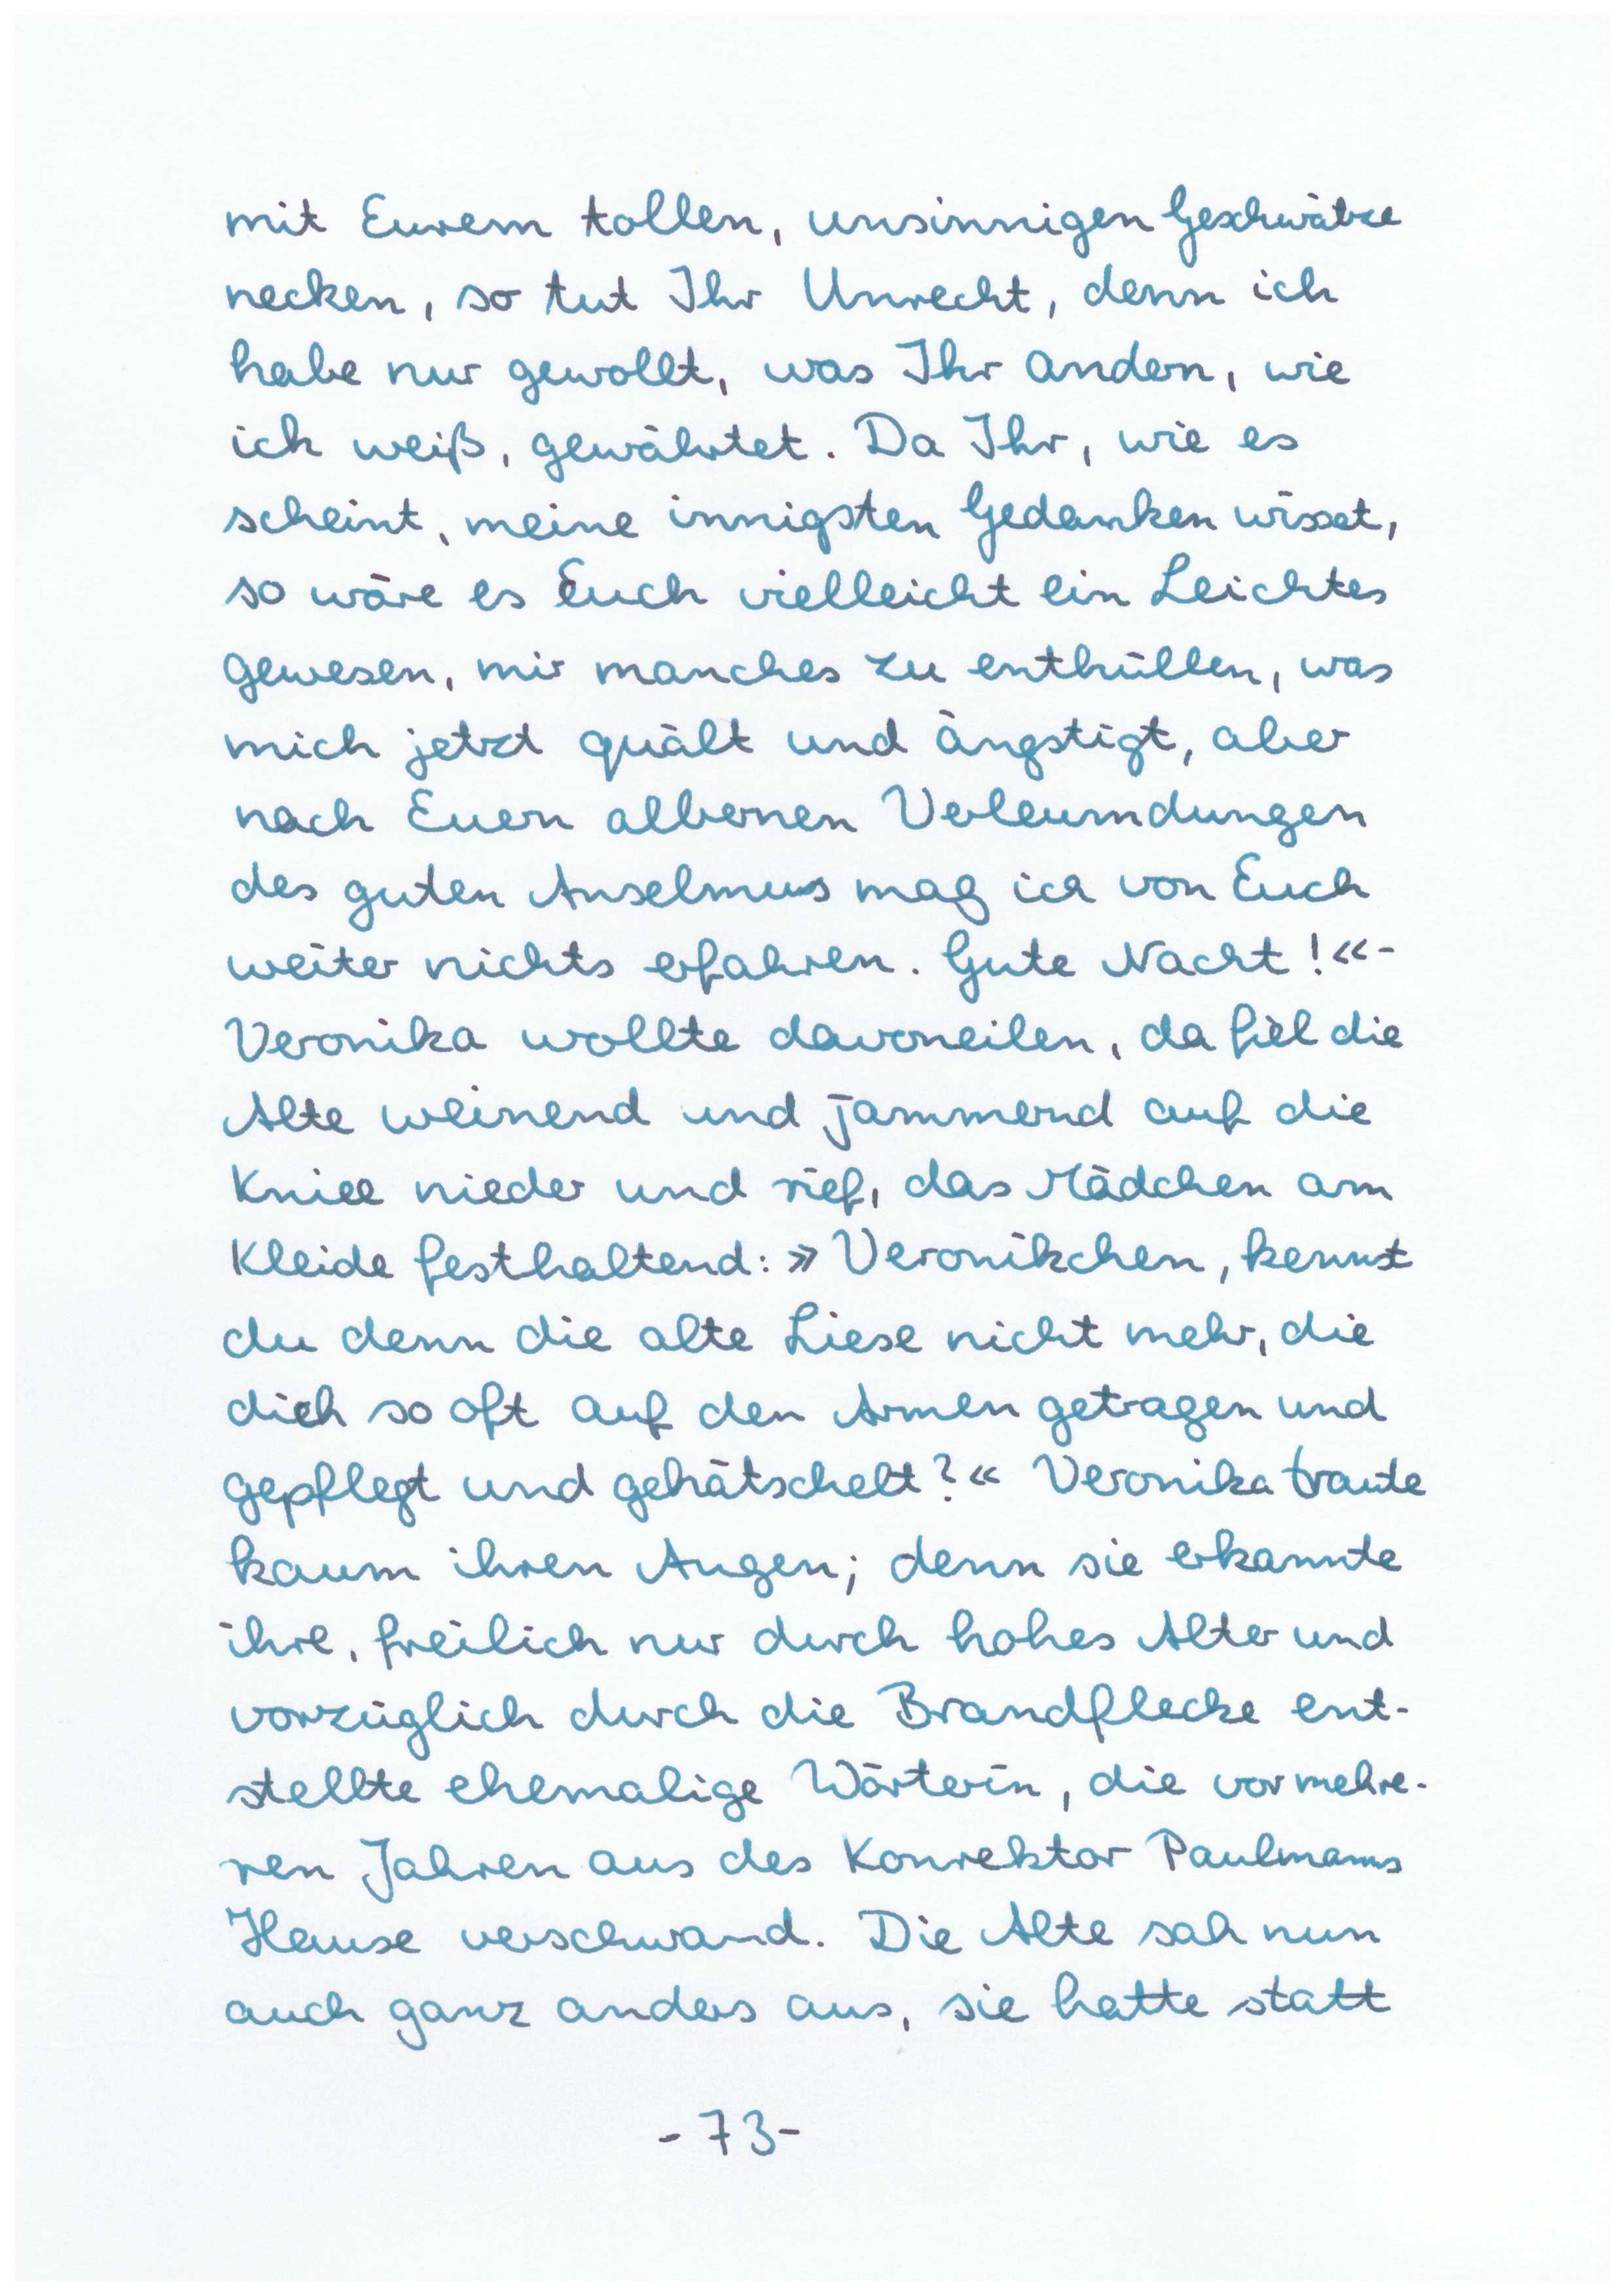 mit Eurem tollen, unsinnigen Geschwätze
necken, so tut Ihr Unrecht, denn ich
habe nur gewollt, was Ihr andern, wie
ich weiß, gewährtet. Da Ihr, wie es
scheint, meine innigsten Gedanken wisset,
so wäre es Euch vielleicht ein Leichtes
gewesen, mir manches zu enthüllen, was
mich jetzt quält und ängstigt, aber
nach Euern albernen Verleumdungen
des guten Anselmus mag ich von Euch
weiter nichts erfahren. Gute Nacht!«-
Veronika wollte davoneilen, da fiel die
Alte weinend und jammernd auf die
Kniee nieder und rief, das Mädchen am
Kleide festhaltend: »Veronikchen, kennst
du denn die alte Liese nicht mehr, die
dich so oft auf den Armen getragen und
gepflegt und gehätschelt?« Veronika traute
kaum ihren Augen; denn sie erkannte
ihre, freilich nur durch hohes Alter und
vorzüglich durch die Brandflecke ent-
stellte ehemalige Wärterin, die vor mehre-
ren Jahren aus des Konrektor Paulmanns
Hause verschwand. Die Alte sah nun
auch ganz anders aus, sie hatte statt
- 73 -